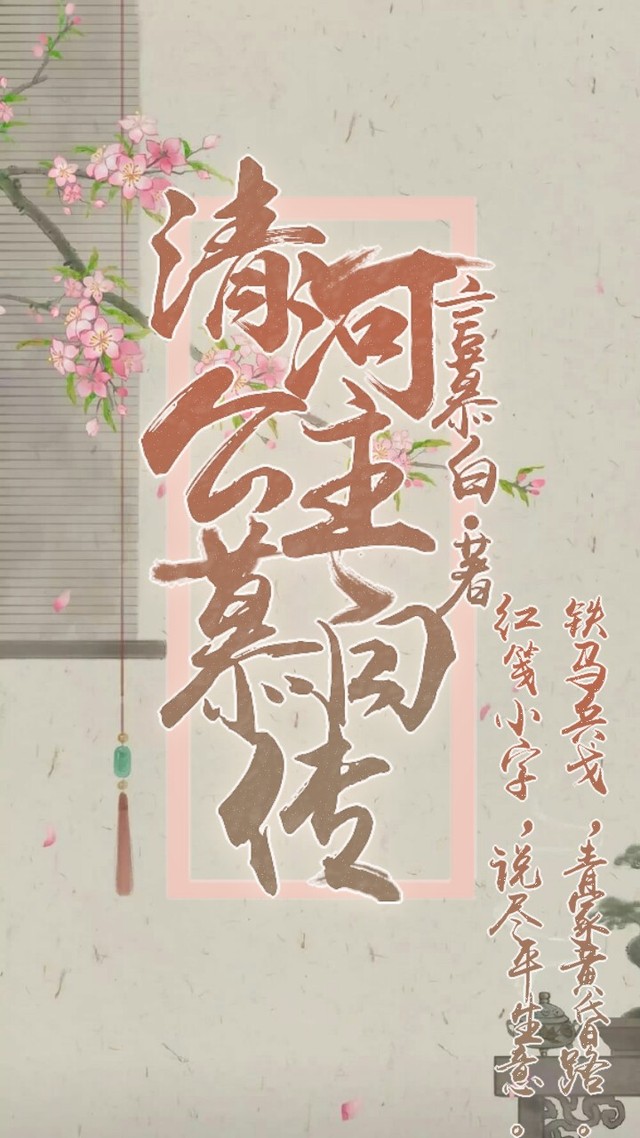 清河
公主
慕向
传
言慕白·著
铁马兵戈，青冢黄昏路。
红笺小字，说尽平生意。